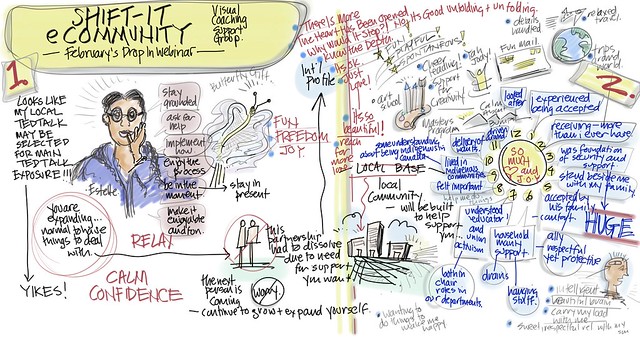 SHIFT-IT
eCOMMUNITY
February's Drop In Webinar
Visual
Coaching
Support
Group.
1.
LOOKS LIKE
MY LOCAL
TEDTALK
MAY BE
SELECTED
FOR MAIN
TEDTALK
EXPOSURE!!!
YIKES!
Estelle
You are
expanding...
normal to have
things to deal
with...
RELAX
CALM
CONFIDENCE
stay
grounded
ask for
help
implement
now
enjoy the
process
be in the
moment
make it
enjoyable
and fun.
stay in
present
butterfly gift.
FUN
FREEDOM
JOY
this
partnership
had to dissolve
due to need
for support
you want
the next
person is
coming
worry
continue to grow + expand yourself.
Int'l
profile
There is More
The Heart Has Been Opened
Why Would it Stop? No Its Good unfolding + unfolding.
know the depth.
Its ok
Just
Love!
Its so
beautiful!
reach
more
PLAYFUL
SPONTANEOUS
art school
cheer
leading
support
creativity
Masters program
details
handled
Fun mail.
relaxed
travel.
trips
around
world.
2.
some understanding
about being indigenous in
Canada
LOCAL BASE
local
community
will be built
to help
support
you...
wanting to
do things to
make me
happy
looked
after
experienced
being accepted
receiving - more
than i ever have
was foundation
of security and
support
stand beside me
with my family
accepted by
his family
comfort
HUGE
ally
respectful
yet protective
driven
around
delivery of
lived in
indigenous
communities
felt important
understood
educator
and union
activism
both in
chair
roles in
our departments.
household
many
support
drains
hanging
stuff.
12
11
10
9
8
7
6
5
4
3
2
1
SO
MUCH
and
JOY
intelligent
beautiful brain
carry my load
with me
sweet respectful rel with my
son